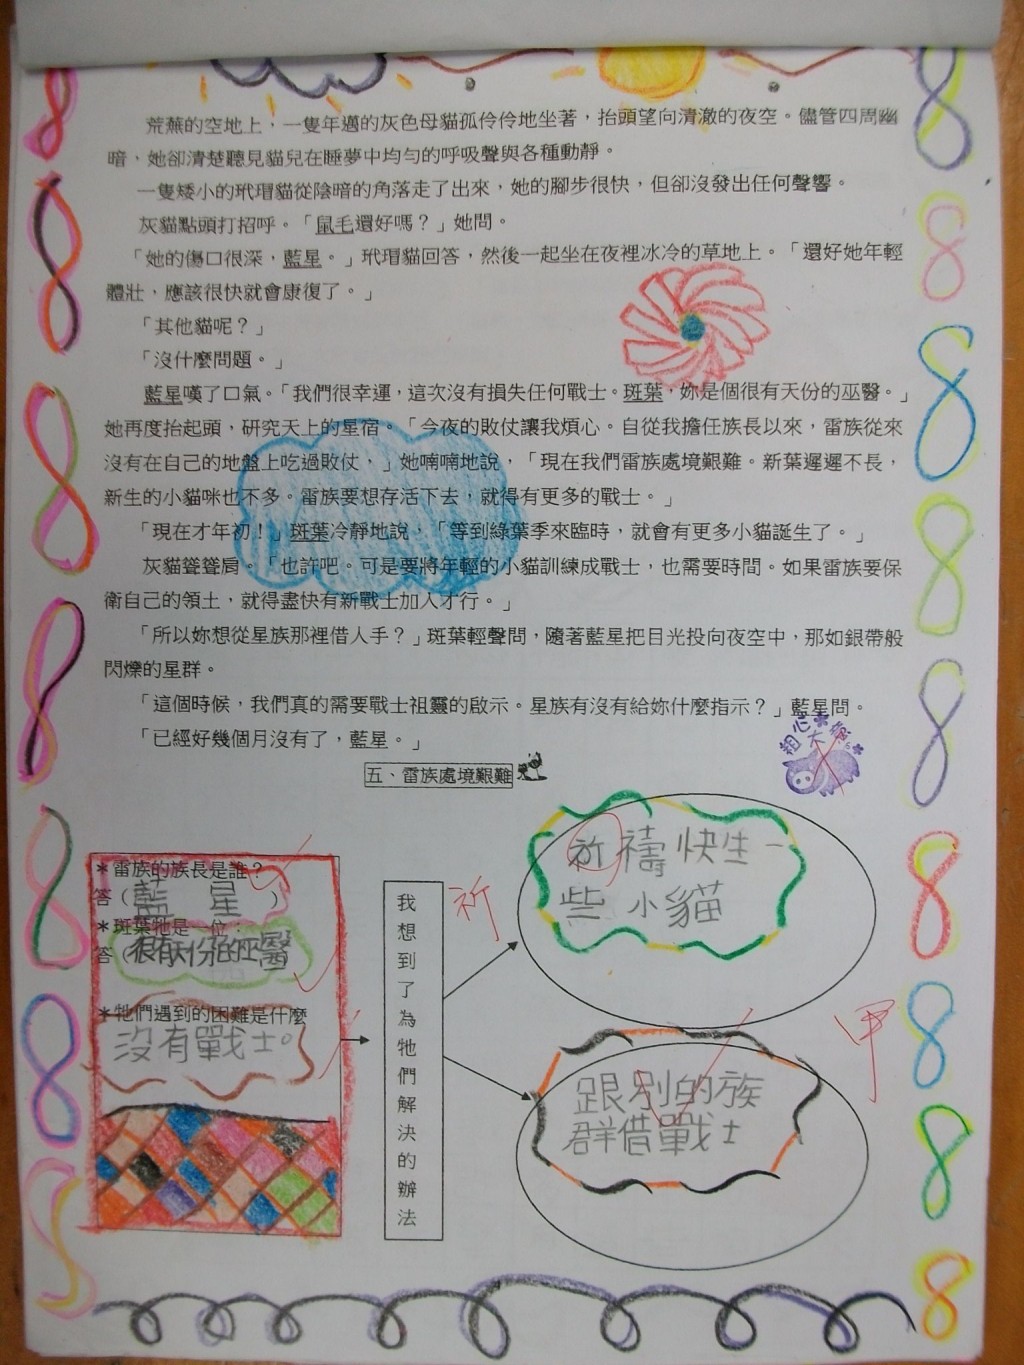 荒蕪的空地上，一隻年邁的灰色母貓孤伶伶地坐著，抬頭望向清澈的夜空。儘管四周幽
暗，她卻清楚聽見貓兒在睡夢中均勻的呼吸聲與各種動靜。
一隻矮小的玳瑁貓從陰暗的角落走了出來，她的腳步很快，但卻沒發出任何聲響。
灰貓點頭打招呼。「鼠毛還好嗎？」她問。
「她的傷口很深，藍星。」玳瑁貓回答，然後一起坐在夜裡冰冷的草地上。「還好她年輕
體壯，應該很快就會康復了。」
「其他貓呢？」
「沒什麼問題。」
藍星嘆了口氣。「我們很幸運，這次沒有損失任何戰士。斑葉，妳是個很有天份的巫醫。」
她再度抬起頭，研究天上的星宿。「今夜的敗仗讓我煩心。自從我擔任族長以來，雷族從來
沒有在自己的地盤上吃過敗仗，」她喃喃地說，「現在我們雷族處境艱難。新葉遲遲不長，
新生的小貓咪也不多。雷族要想存活下去，就得有更多的戰士。」
「現在才年初！」斑葉冷靜地說，「等到綠葉季來臨時，就會有更多小貓誕生了。」
灰貓聳聳肩。「也許吧。可是要將年輕的小貓訓練成戰士，也需要時間。如果雷族要保
衛自己的領土，就得盡快有新戰士加入才行。」
「所以妳想從星族那裡借人手？」斑葉輕聲問，隨著藍星把目光投向夜空中，那如銀帶般
閃爍的星群。
「這個時候，我們真的需要戰士祖靈的啟示。星族有沒有給妳什麼指示？」藍星問。
「已經好幾個月沒有了，藍星。」
粗心大
五、雷族處境艱難
＊雷族的族長是誰？
答（藍 星）
＊斑葉牠是一位：
答（很有天份的巫醫）
＊牠們遇到的困難是什麼
沒有戰士。
我想到了為牠們解決的辦法
祈
祈禱快生一
些小貓
甲
跟別的族
群借戰士